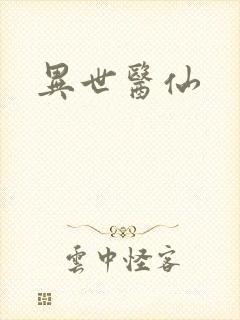 異世醫仙
雲中怪客